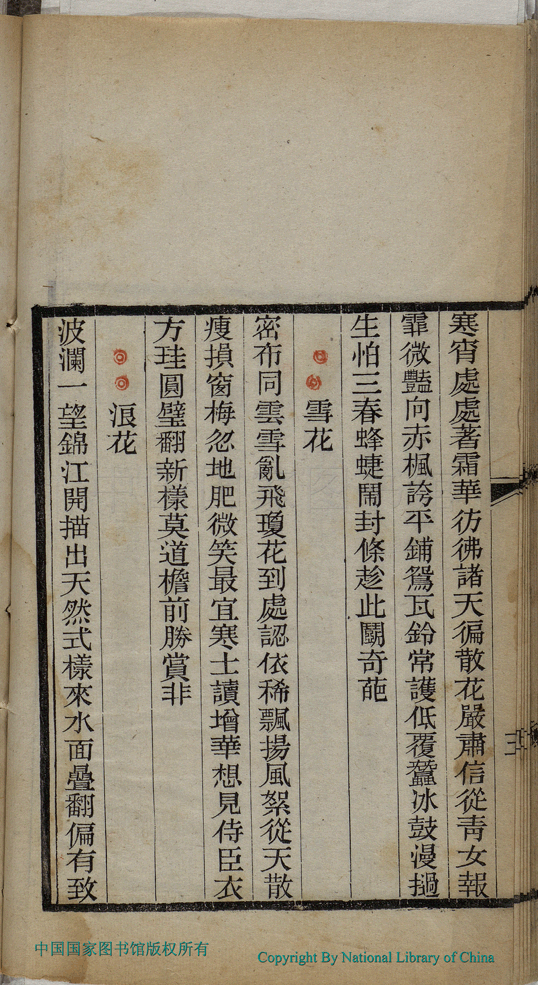 寒宵處處著霜華彷彿諸天徧散花嚴肅信從青女報
霏微豔向赤楓誇平鋪鴛瓦鈴常護低覆蠶冰鼓漫撾
生怕三春蜂蜨鬧封條趁此鬭奇葩
雪花
密布同雲雪亂飛瓊花到處認依稀飄揚風絮從天散
瘦損窗梅忽地肥微笑最宜寒士讀增華想見侍臣衣
方珪圓璧翻新樣莫道檐前勝賞非
浪花
波瀾一望錦江開描出天然式樣來水面疊翻偏有致
三
中国国家图书馆版权所有
Copyright By National Library of China